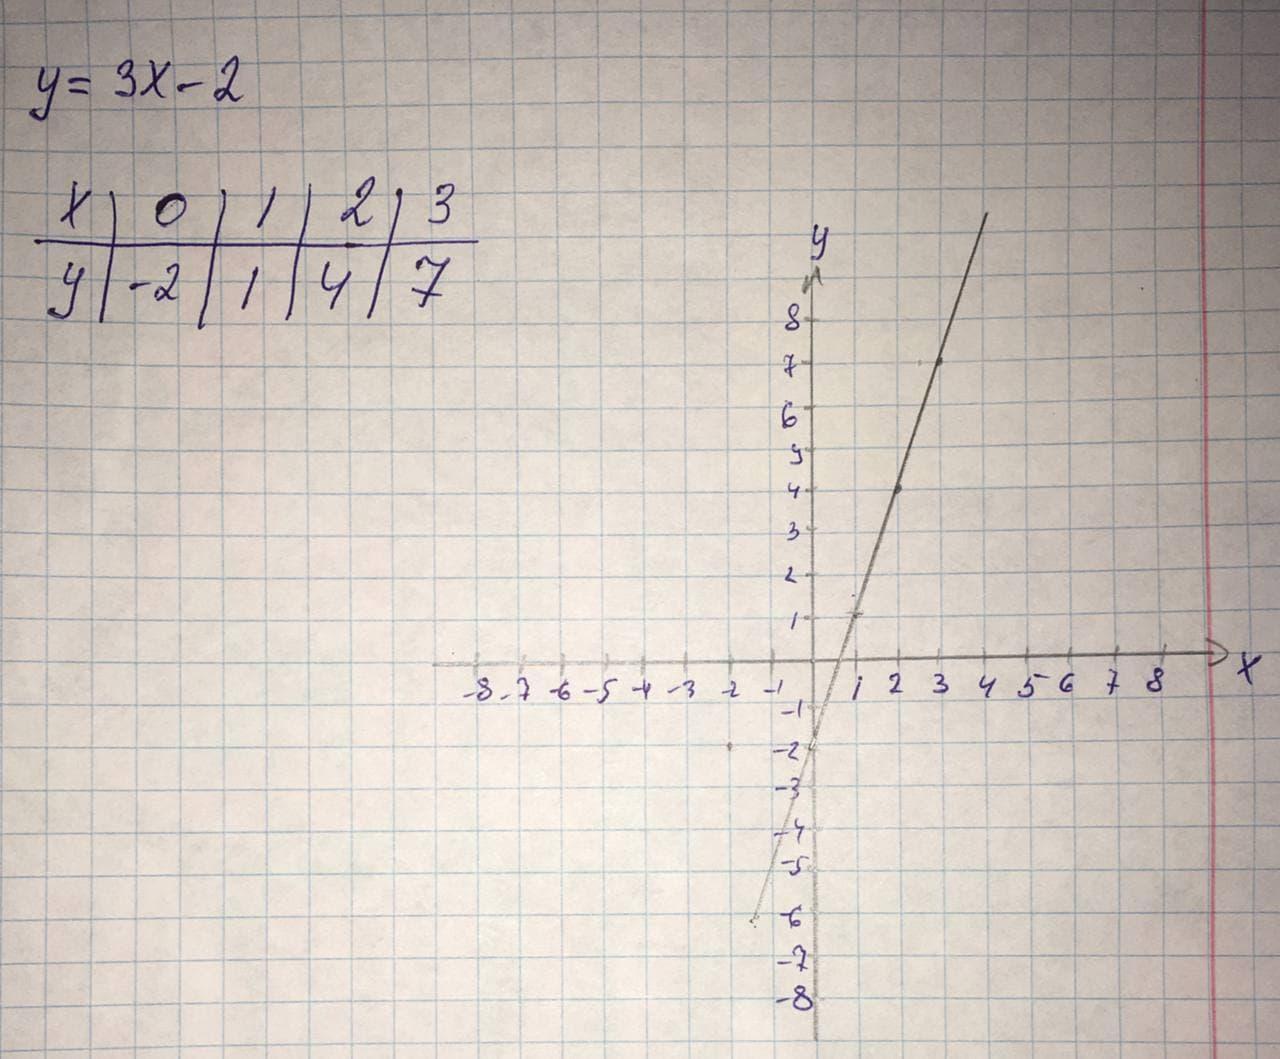 y = 3x - 2
x | 0 | 1 | 2 | 3
y | -2 | 1 | 4 | 7
y
8
7
6
5
4
3
2
1
-8 -7 -6 -5 -4 -3 -2 -1 1 2 3 4 5 6 7 8 x
-1
-2
-3
-4
-5
-6
-7
-8